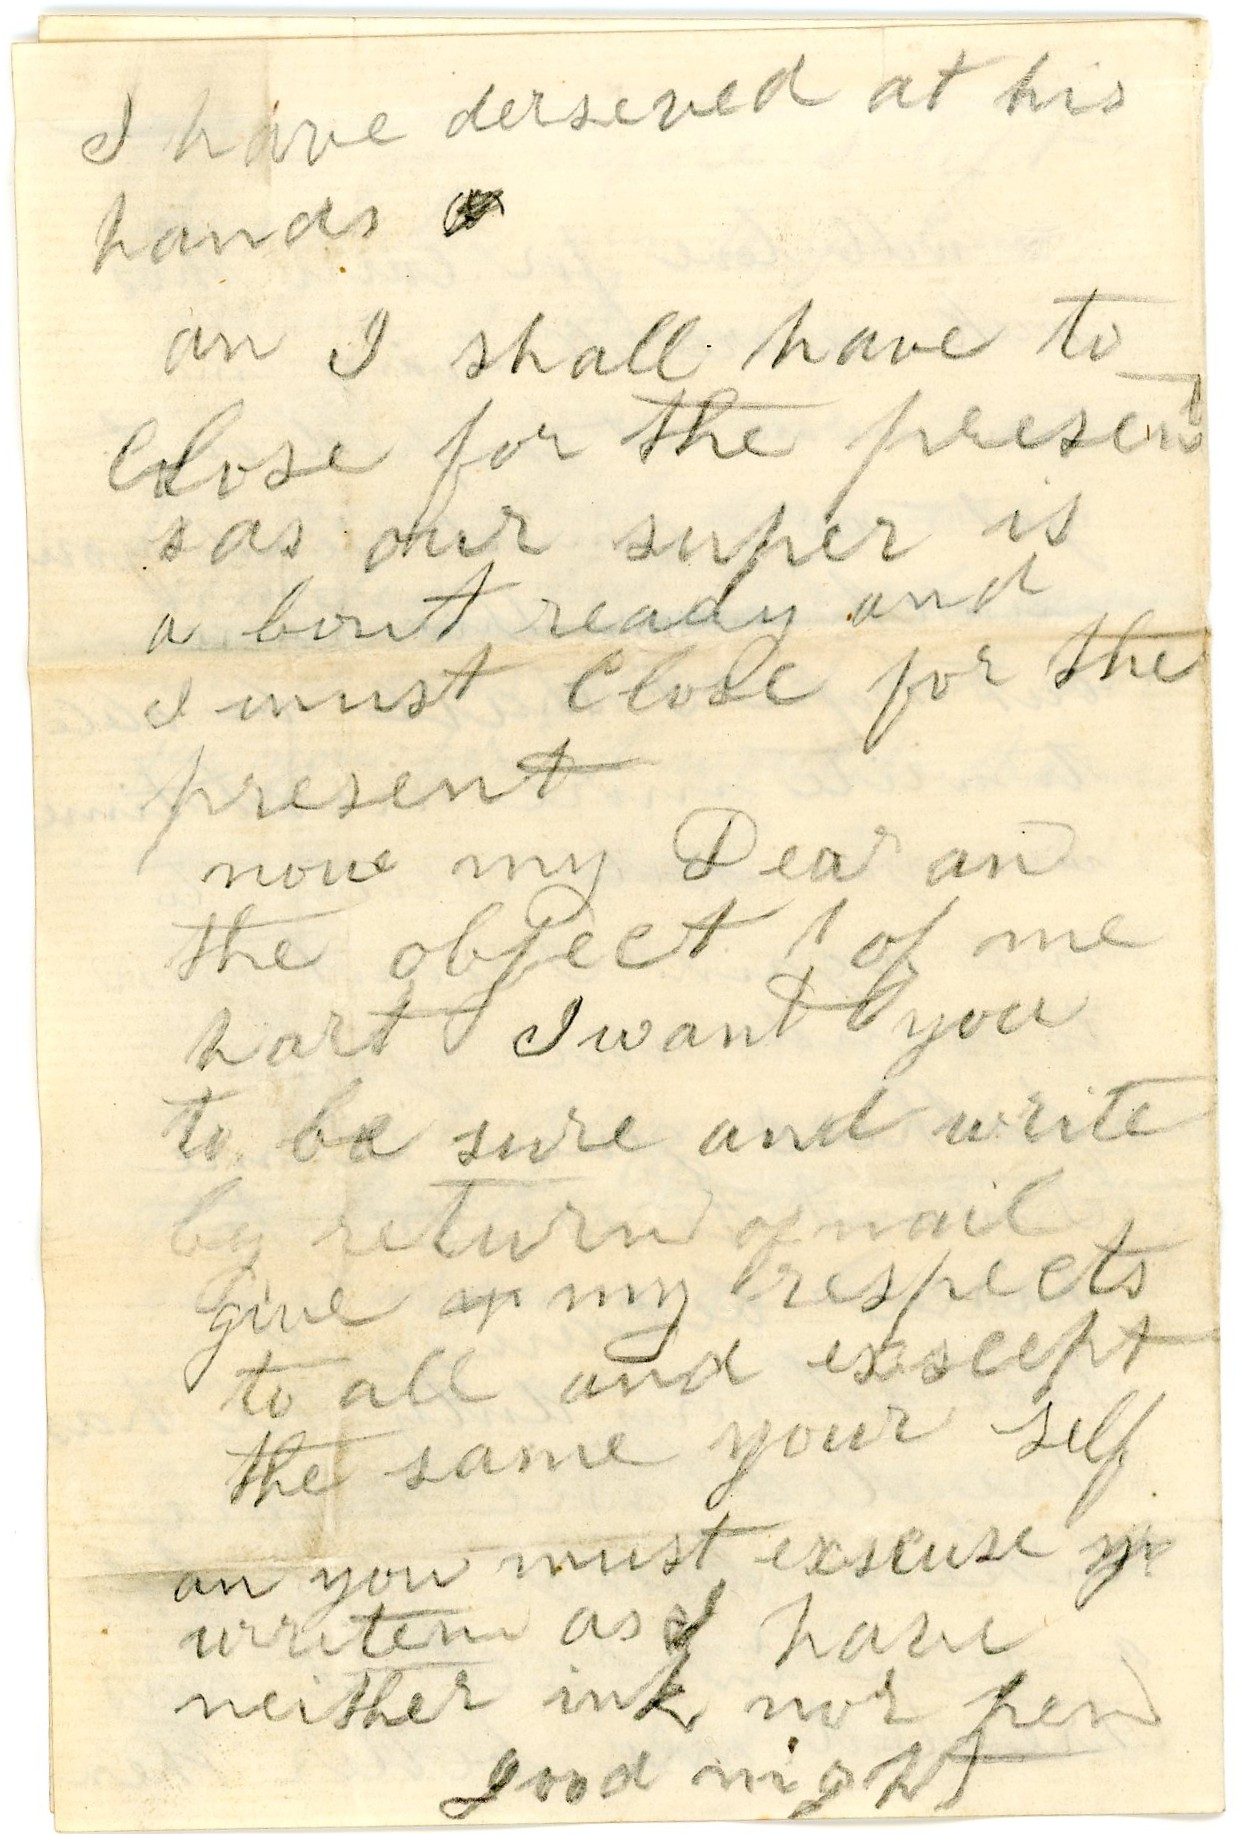 I have derseved at his
hands
an I shall have to
Close for the present
s as our super is
a bout ready and
I must Close for the
present
now my Dear an
the object of me
hart I want you
to be sure and write
by return of mail
give my respects
to all and exscept
the same your self
an you must exscuse my
writen as I have
neither ink nor pen
good night